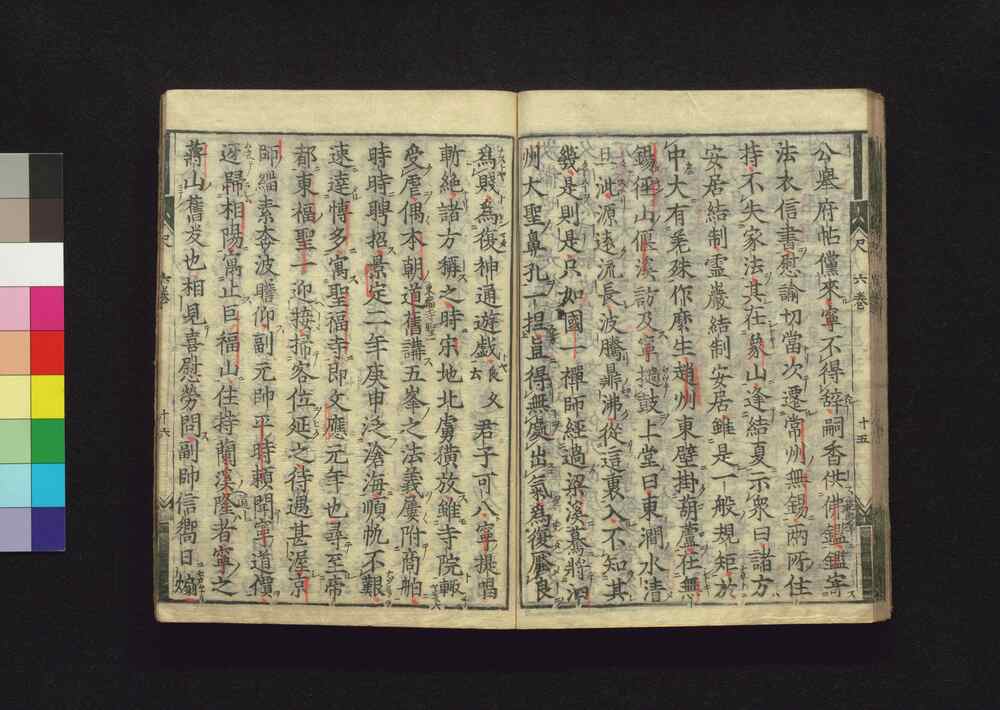 公擧府帖儻來寧不得辭嗣香供佛鑑鑑寄
法衣信書慰諭切當次遷常州無錫兩所住
持不失家法其在象山逢結夏示衆曰諸方
安居結制靈巖結制安居雖是一般規矩於
中大有毫殊作麽生趙州東壁掛葫蘆在無
錫住山偃溪訪及寧撾鼓上堂曰東澗水清
此源遠流長波騰鼎沸從這裏入不知其
幾是則是只如國一禪師經過梁溪驀將泗
州大聖鼻孔一担直得無處出氣爲復壓良
爲賎爲復神通遊戯良久云君子可八寧提唱
斬絶諸方稱之時宋地北虜猾放縱寺院輙
受虐偶本朝道舊講五峯之法義屢附商舶
時時聘招景定二年庚申泛滄海順帆不艱
速達博多寓聖福寺即文應元年也尋至帝
都東福聖一迎接掃客位延之待遇甚渥京
師緇素奔波瞻仰副元帥平時頼聞寧道價
迓歸相陽寓止巨福山住持蘭溪隆者寧之
蔣山舊友也相見喜慰勞問副帥信嚮日
尺 六巻
十五
六巻
十六